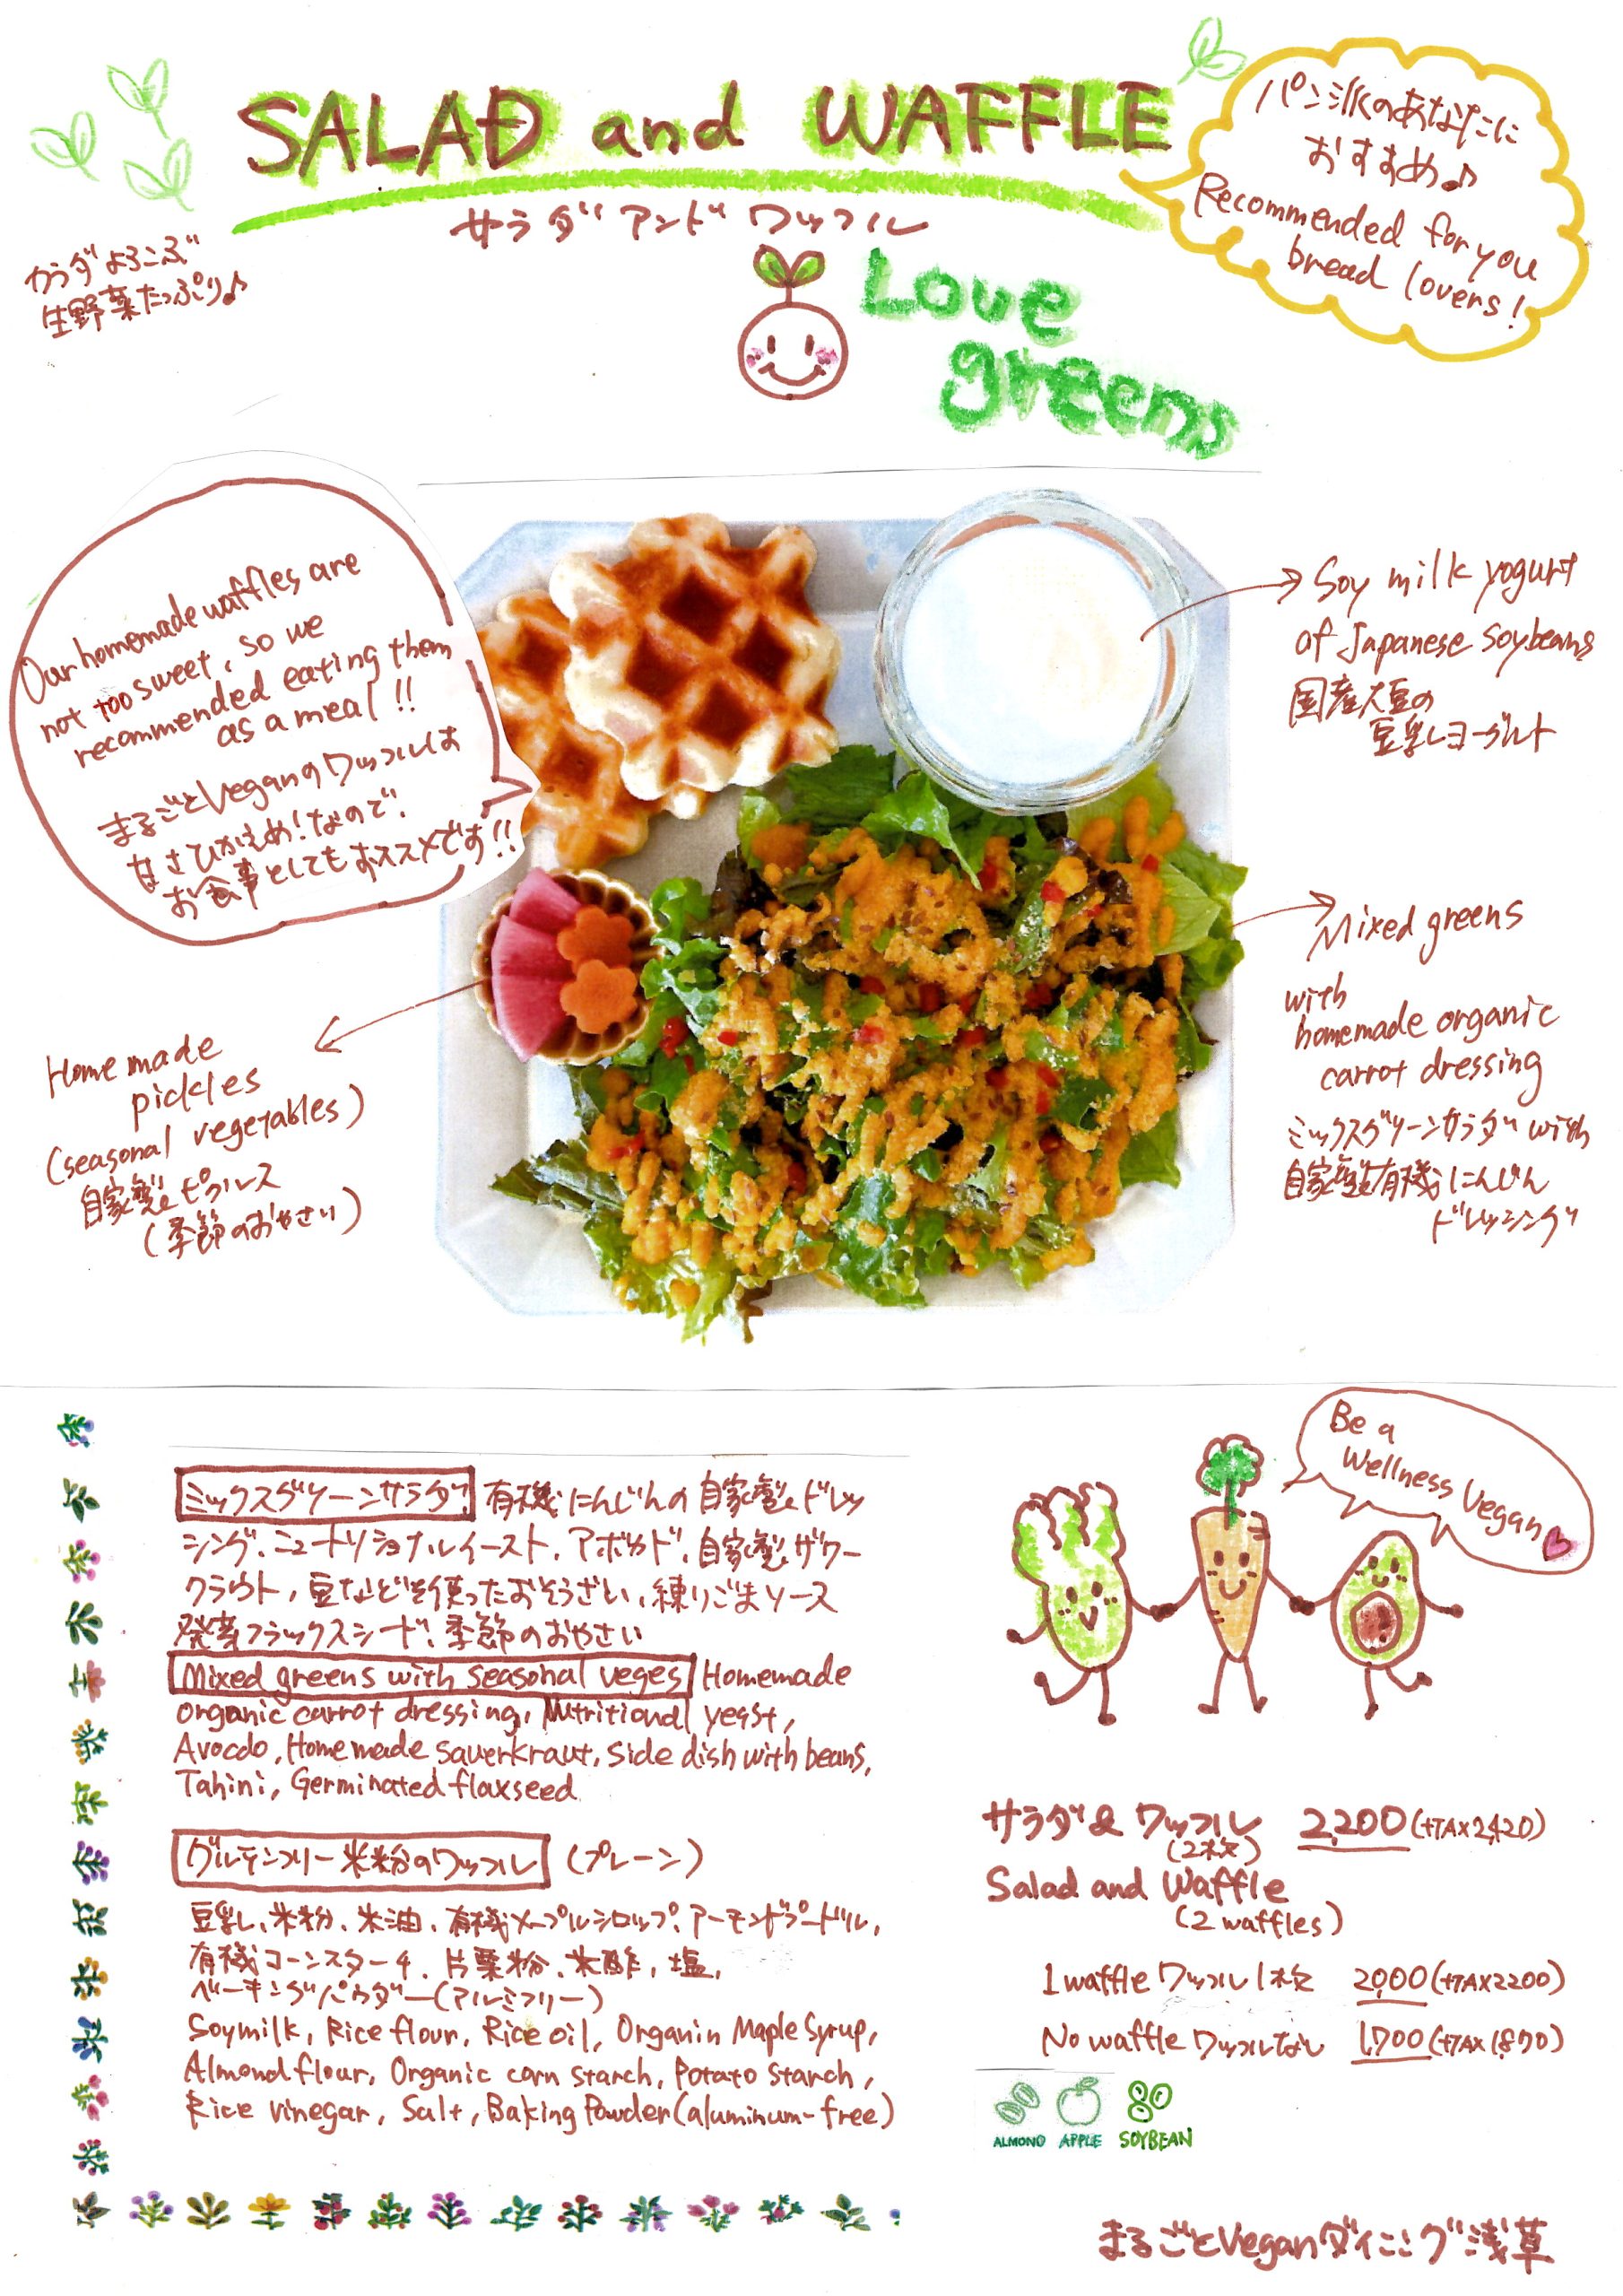 SALAD and WAFFLE
サラダ アンド ワッフル
パン派のあなたに
おすすめ♪
Recommended for you
bread lovers!
カラダよろこぶ
生野菜たっぷり♪
Love
greens
Our homemade waffles are
not too sweet, so we
recommended eating them
as a meal!!
まるごとVeganのワッフルは
甘さひかえめ!なので、
お食事としてもおススメです!!
Soy milk yogurt
of Japanese soybeans
国産大豆の
豆乳ヨーグルト
Mixed greens
with
homemade organic
carrot dressing
ミックスグリーンサラダ with
自家製有機にんじん
ドレッシング
Home made
pickles
(seasonal vegetables)
自家製ピクルス
(季節のおやさい)
Be a
Wellness Vegan
ミックスグリーンサラダ 有機にんじんの自家製ドレッ
シング、ニュートリショナルイースト、アボカド、自家製ザワー
クラウト、豆などを使ったおそうざい、練りごまソース
発芽フラックスシード、季節のおやさい
Mixed greens with seasonal veges Homemade
organic carrot dressing, Nutritional yeast,
Avocdo, Home made sauerkraut, side dish with beans,
Tahini, Germinated flaxseed
グルテンフリー米粉のワッフル (プレーン)
豆乳、米粉、米油、有機メープルシロップ、アーモンドプードル、
有機コーンスターチ、片栗粉、米酢、塩、
ベーキングパウダー(アルミフリー)
Soymilk, Rice flour, Rice oil, Organin Maple Syrup,
Almond flour, Organic corn starch, Potato starch,
Rice vinegar, Salt, Baking Powder (aluminum-free)
サラダ& ワッフル 2,200 (+TAX 2,420)
(2枚)
Salad and Waffle
(2 waffles)
1 waffle ワッフル1枚 2,000 (+TAX 2200)
No waffle ワッフルなし 1,700 (+TAX 1,870)
ALMOND APPLE SOYBEAN
まるごとVeganダイニング浅草